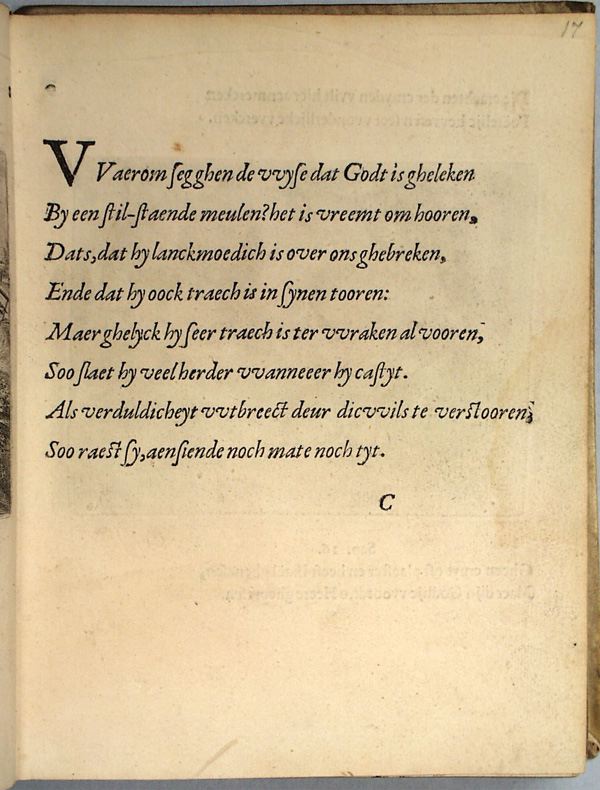 17
VVaerom segghen de vvyse dat Godt is gheleken
By een stil-staende meulen? het is vreemt om hooren,
Dats, dat hy lanckmoedich is over ons ghebreken,
Ende dat hy oock traech is in synen tooren:
Maer ghelyck hy seer traech is ter vvraken al vooren,
Soo slaet hy veel herder vvanneeer hy castyt.
Als verduldicheyt vvtbreect deur dicvvils te verstooren,
Soo raest sy, aensiende noch mate noch tyt.
C